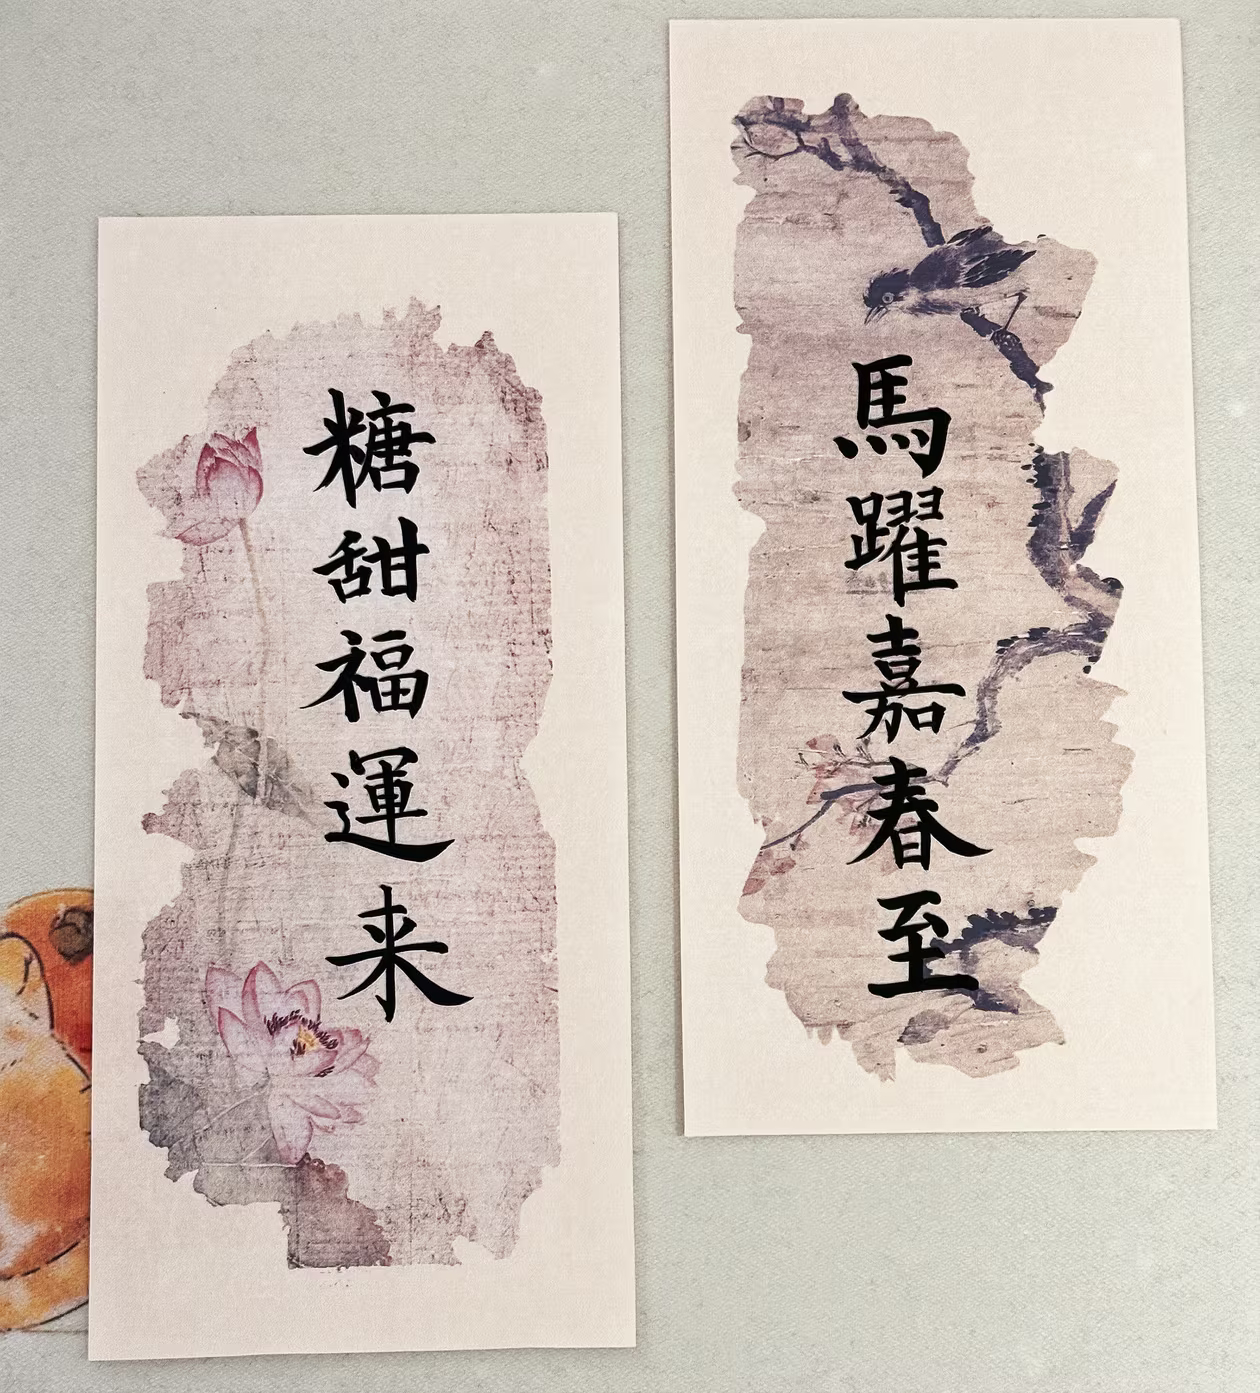 馬躍嘉春至
糖甜福運来